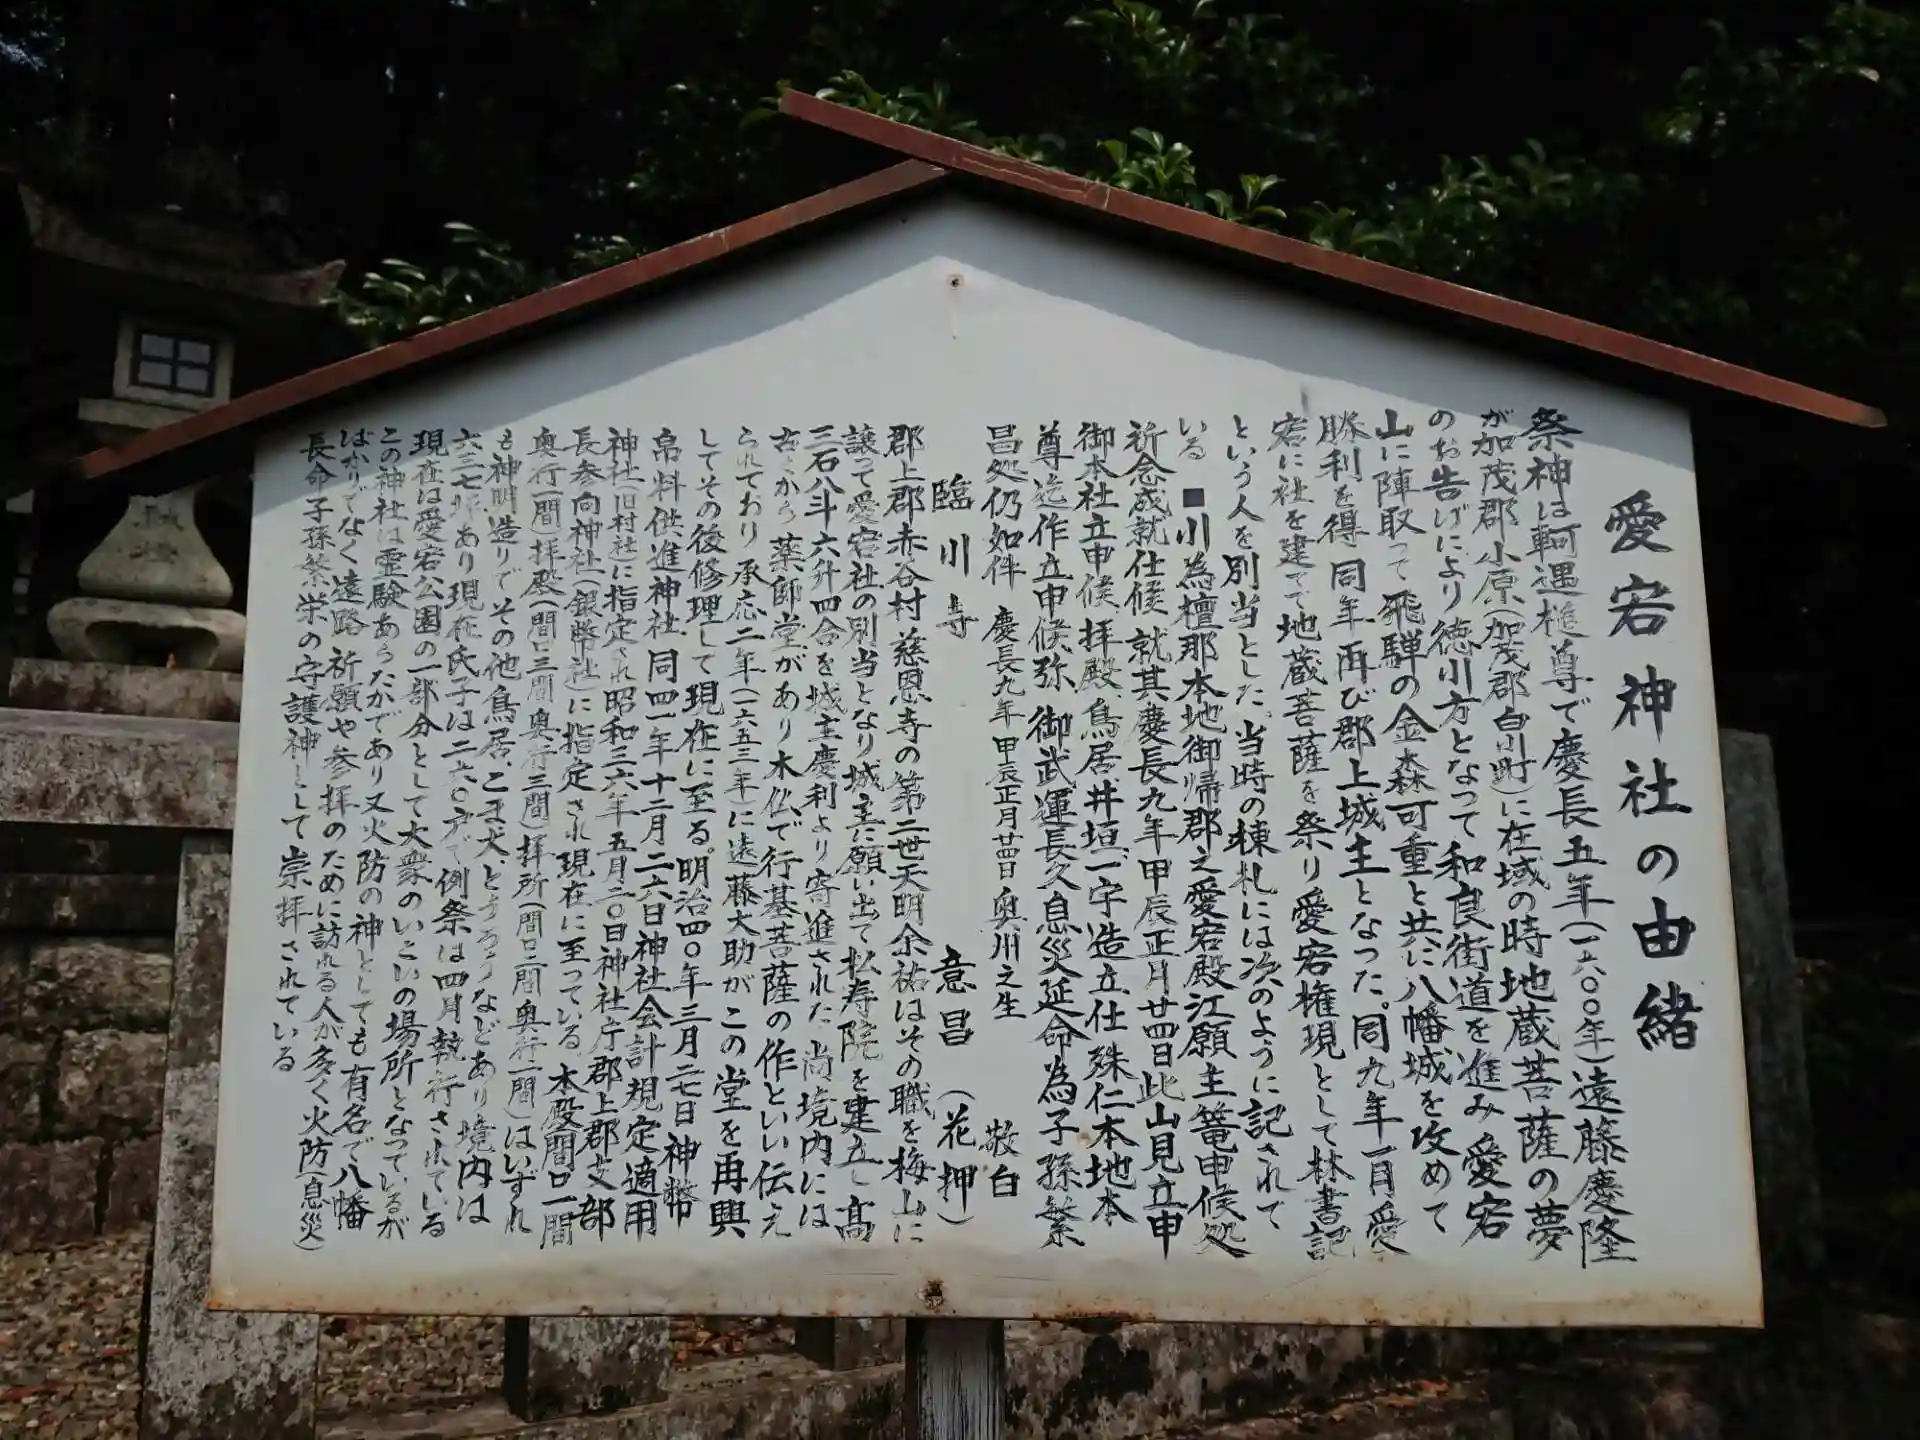 愛宕神社の由緒
祭神は軻遇槌尊で慶長五年(一六〇〇年)遠藤慶隆
が加茂郡小原(加茂郡白川町)に在域の時地蔵菩薩の夢
のお告げにより徳川方となって和良街道を進み愛宕
山に陣取って飛騨の金森可重と共に八幡城を攻めて
勝利を得同年再び郡上城主となった。同九年一月愛
宕に社を建てて地蔵菩薩を祭り愛宕権現として林書記
という人を別当とした。当時の棟札には次のように記されて
いる
■川為檀那本地御帰郡之愛宕殿江願主篭申候処
祈念成就仕候就其慶長九年甲辰正月廿四日此山見立申
御本社立申候拝殿鳥居井垣一宇造立仕殊仁本地本
尊迄作立申候弥御武運長久息災延命為子孫繁
昌処仍如件 慶長九年甲辰正月廿四日奥州之生 敬白
臨川寺 意昌 (花押)
郡上郡赤谷村慈恩寺の第二世天明余祐はその職を梅山に
譲って愛宕社の別当となり城主に願い出て松寿院を建立し高
三石八斗六升四合を城主慶利より寄進された尚境内には
古くから薬師堂があり木仏で行基菩薩の作といい伝え
られており承応二年(一六五三年)に遠藤大助がこの堂を再興
してその後修理して現在に至る。明治四〇年三月二七日神幣
帛料供進神社、同四一年十二月二六日神社会計規定適用
神社(旧村社)に指定され昭和三六年五月二〇日神社庁郡上郡支部
長参向神社(銀幣社)に指定され現在に至っている。本殿間口一間
奥行一間)拝殿(間口三間奥行三間)拝所(間口二間奥行一間)はいずれ
も神明造りでその他鳥居、こま犬、とうろうなどあり境内は
六三七坪あり現在氏子は二六〇戸で例祭は四月執行されている
現在は愛宕公園の一部分として大衆のいこいの場所となっているが
この神社は霊験あらたかであり又火防の神としても有名で八幡
ばかりでなく遠路祈願や参拝のために訪れる人が多く火防(息災)
長命子孫繁栄の守護神として崇拝されている